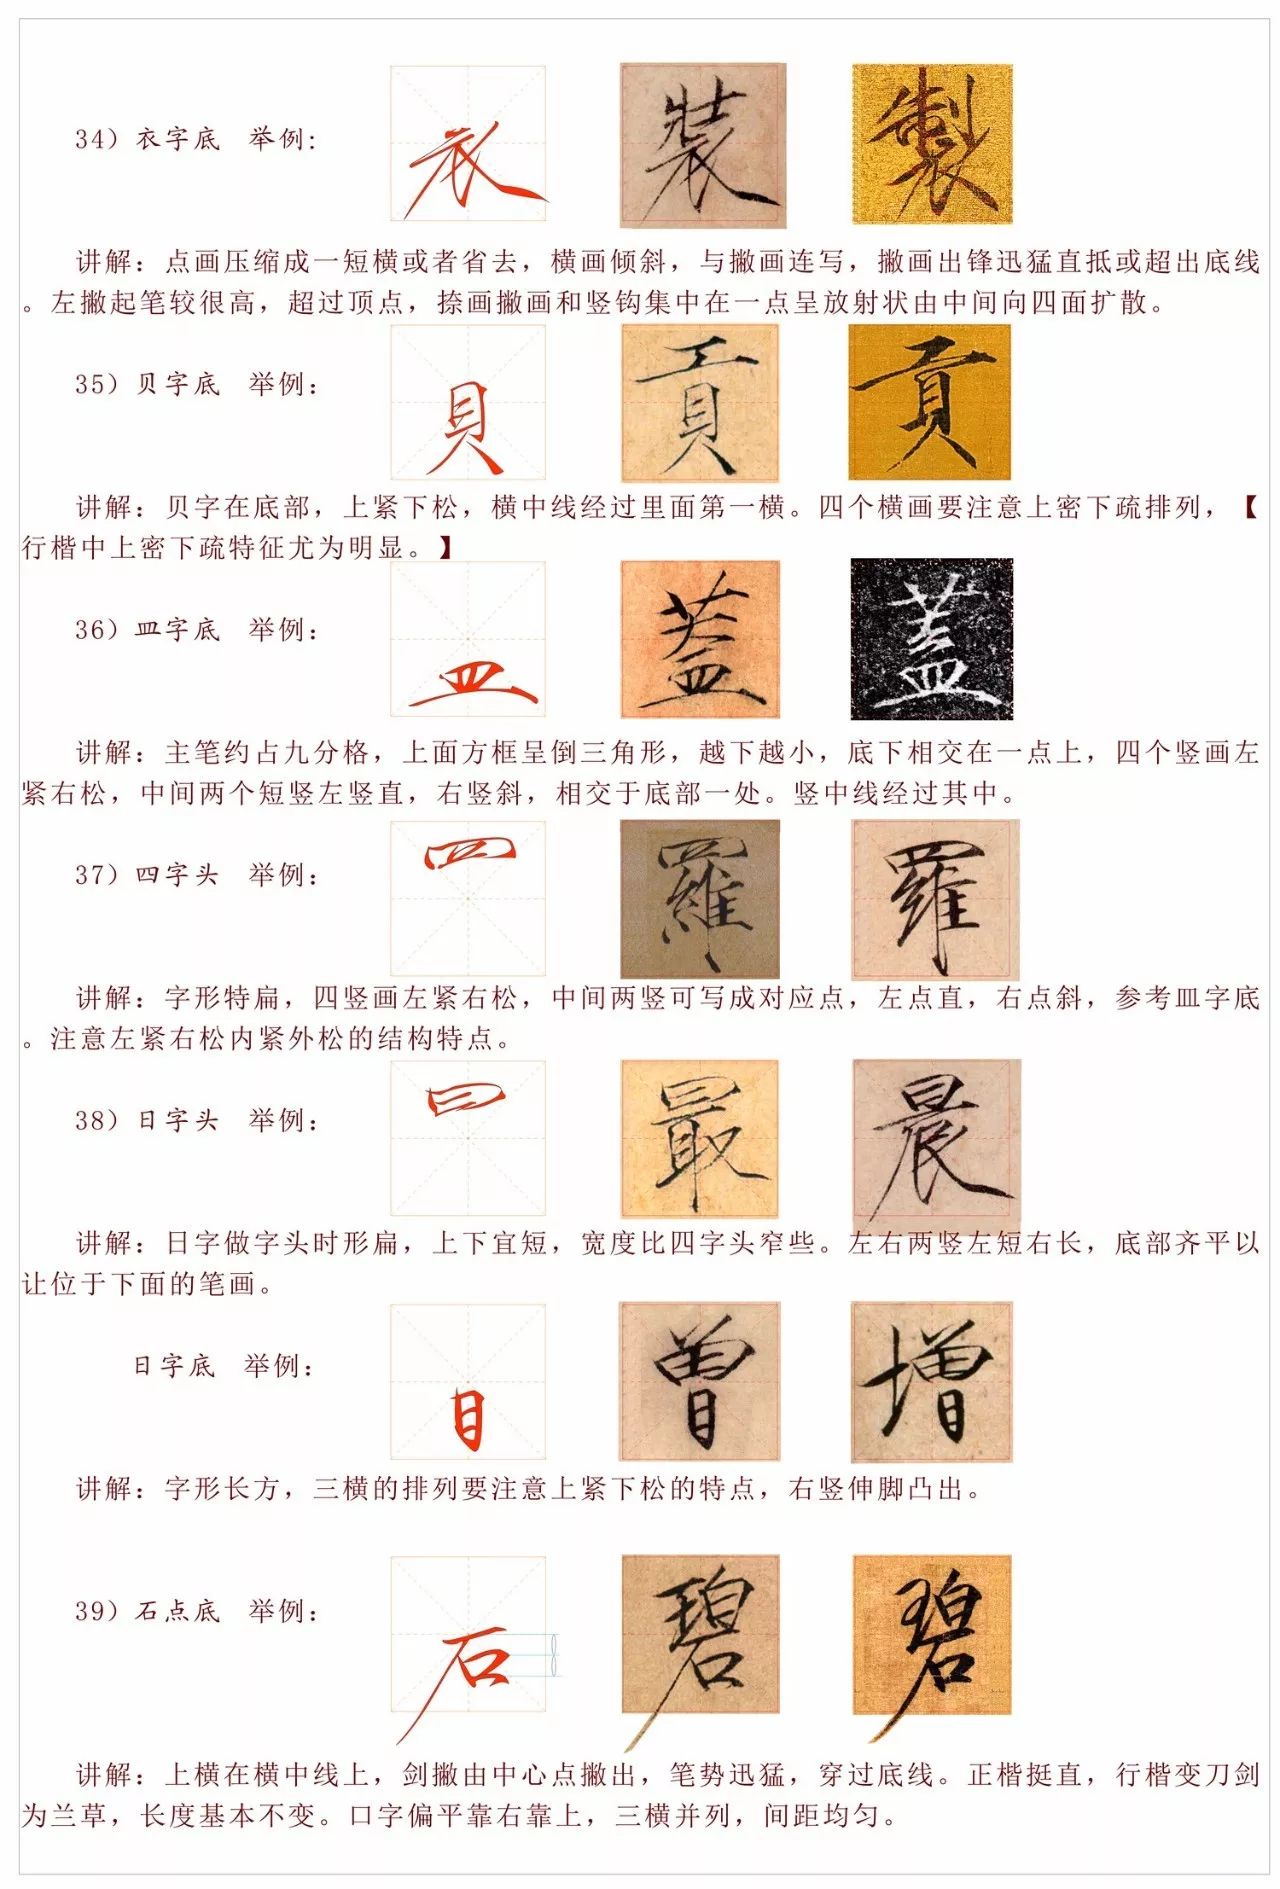 34）衣字底 举例: 衣 裝 製
讲解：点画压缩成一短横或者省去，横画倾斜，与撇画连写，撇画出锋迅猛直抵或超出底线
。左撇起笔较很高，超过顶点，捺画撇画和竖钩集中在一点呈放射状由中间向四面扩散。
35）贝字底 举例： 貝 貢 貢
讲解：贝字在底部，上紧下松，横中线经过里面第一横。四个横画要注意上密下疏排列，【
行楷中上密下疏特征尤为明显。】
36）皿字底 举例： 皿 蓋 蓋
讲解：主笔约占九分格，上面方框呈倒三角形，越下越小，底下相交在一点上，四个竖画左
紧右松，中间两个短竖左竖直，右竖斜，相交于底部一处。竖中线经过其中。
37）四字头 举例： 罒 羅 羅
讲解：字形特扁，四竖画左紧右松，中间两竖可写成对应点，左点直，右点斜，参考皿字底
。注意左紧右松内紧外松的结构特点。
38）日字头 举例： 日 最 晨
讲解：日字做字头时形扁，上下宜短，宽度比四字头窄些。左右两竖左短右长，底部齐平以
让位于下面的笔画。
日字底 举例： 日 曾 增
讲解：字形长方，三横的排列要注意上紧下松的特点，右竖伸脚凸出。
39）石点底 举例： 石 碧 碧
讲解：上横在横中线上，剑撇由中心点撇出，笔势迅猛，穿过底线。正楷挺直，行楷变刀剑
为兰草，长度基本不变。口字偏平靠右靠上，三横并列，间距均匀。